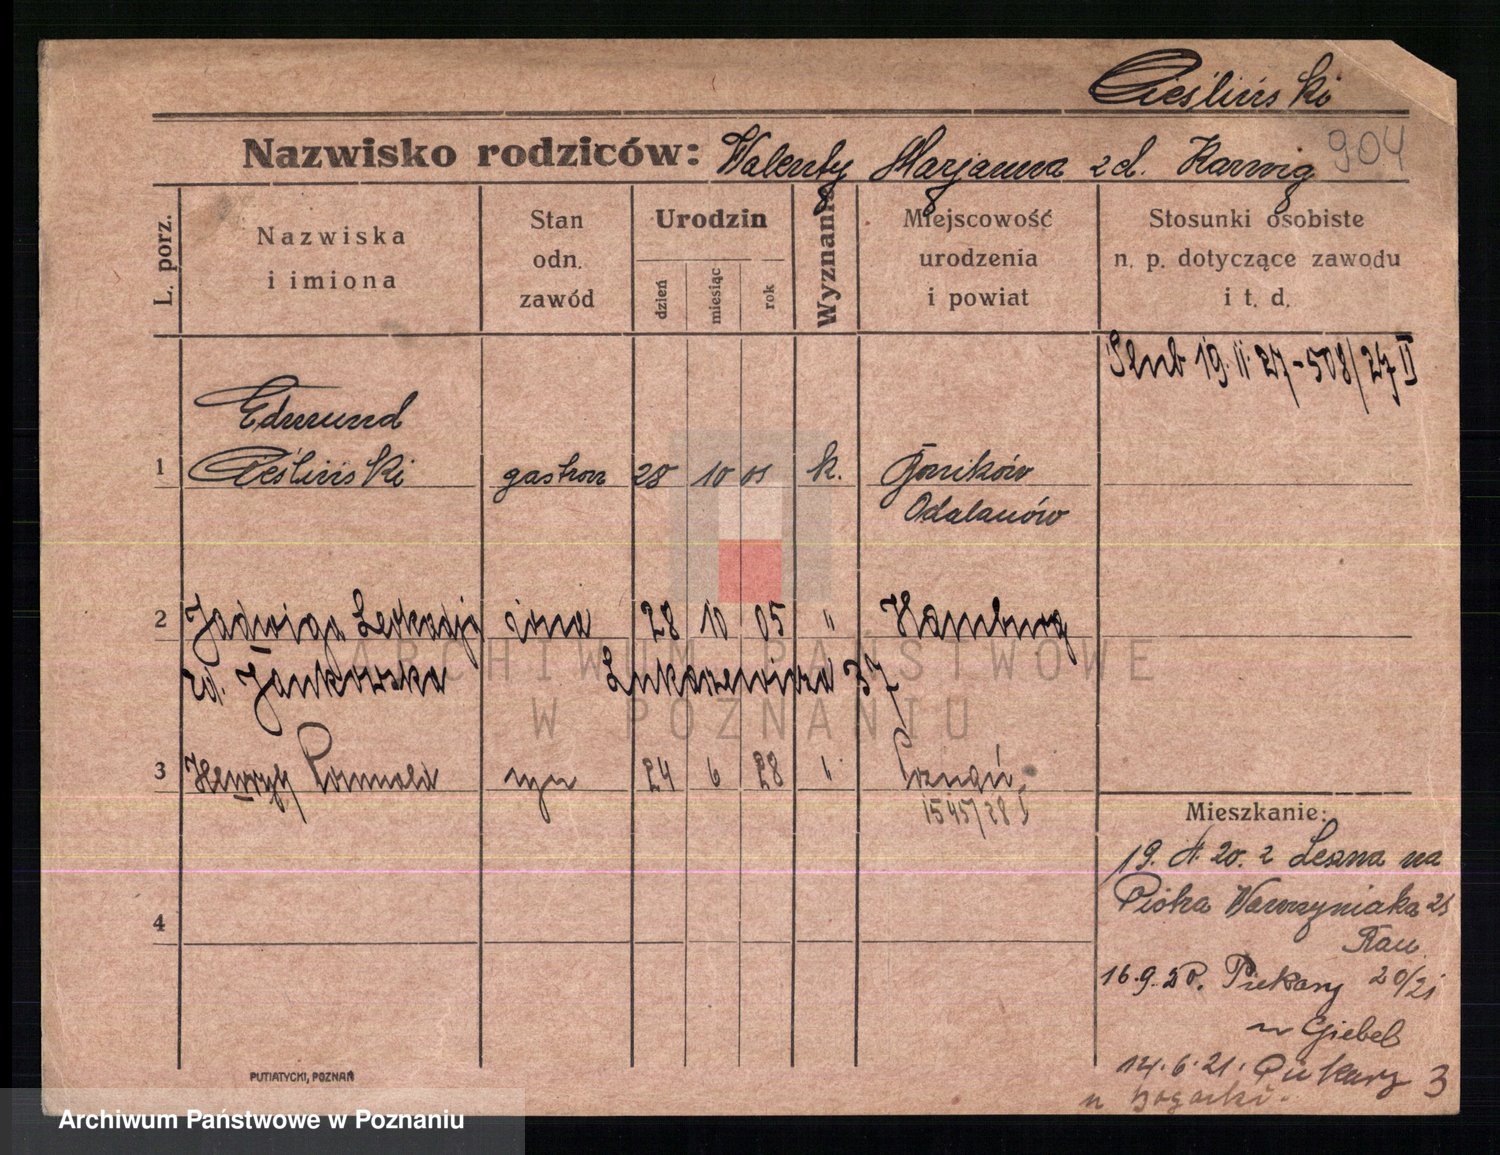 Cieśliński
Nazwisko rodziców: Walenty Marjanna zd. Karwig 904
L. porz.
Nazwiska i imiona
Stan odn. zawód
Urodzin
dzień
miesiąc
rok
Wyznanie
Miejscowość urodzenia i powiat
Stosunki osobiste n. p. dotyczące zawodu i t. d.
Ślub 19. II. 27 - 508/27 II
Edmund
1 Cieśliński gastron 28 10 01 k.
Odalanów
2 Jadwiga Leokadja żona 28 10 05 " Hamburg
zd. Jankowska Łukaszewicza 37
3 Henryk Romuald syn 24 6 28 " Poznań
1545/28 I
Mieszkanie:
19. 20. z Leszna na
Piotra Wawrzyniaka 21
16.9.20. Piekary 20/21
u Giebel
4
14.6.21. Piekary 3
PUTIATYCKI, POZNAŃ
ARCHIWUM PAŃSTWOWE
W POZNANIU
Archiwum Państwowe w Poznaniu